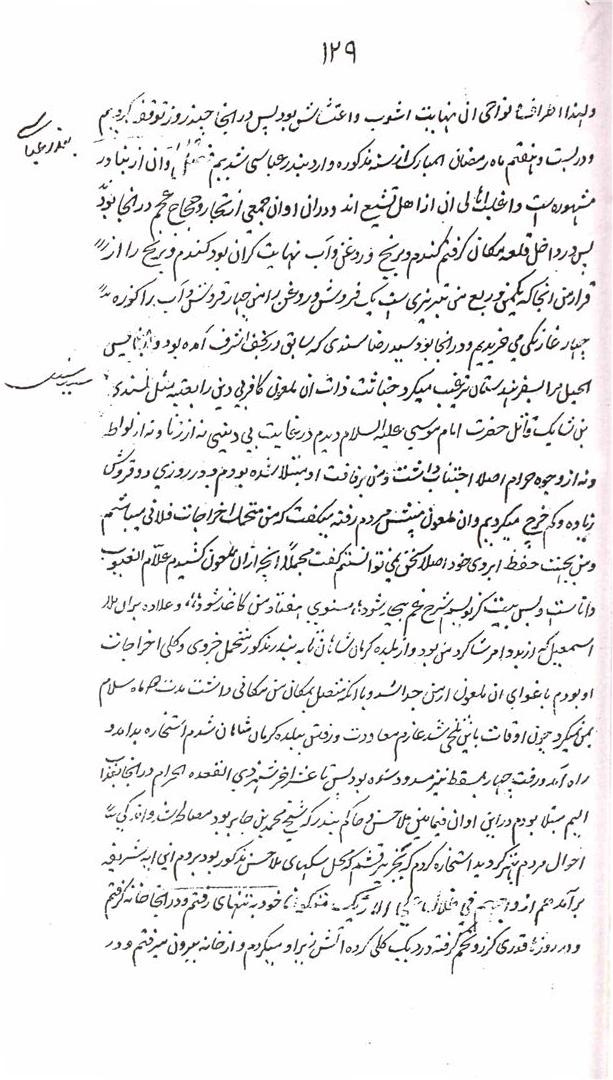 ۱۲۹
و لهذا اطراف نواحی ان نهایت اشوب و اغتشاش بود پس در انجا چند روز توقف کردیم
بندر عباسی
و در بست و هفتم ماه رمضان المبارک از سنه مذکوره وارد بندر عباسی شدیم وان از بنادر
مشهوره است و اغلب اهالی ان از اهل تشیع اند و دران اوان جمعی از تجار و حجاج عجم در انجا بود
پس در داخل قلعه مکان گرفتم گندم و برنج و روغن و آب نهایت گران بود گندم و برنج را از
قرار من انجا که یکمن و ربع من تبریزی است یک قروش و روغن را منی چهار قروش و آب را کوزه
چهار غازبکی می خریدیم و در انجا بود سید رضا سندی که سابق در نجف اشرف آمده بود و
سید سندی
الحیل مرا بسفر هندستان ترغیب میکرد خباثت ذات ان ملعون کافر بی دین را بعینه مثل لسندی
بن شاهک قاتل حضرت امام موسی علیه السلام دیدم در غایت بی دینی نه از زنا و نه از لواط
و نه از وجوه حرام اصلا اجتناب داشت و من برفاقت او مبتلا شده بودم و در روزی دو قروش
زیاده و کم خرج میکردیم وان ملعون پیش مردم رفته میگفت که من متحمل اخراجات فلانی میباشم
و من بجهت حفظ ابروی خود اصلا سخن نمی توانستم گفت مجملا انچه از ان ملعون کشیدم علام الغیوب
دانا است و بس بیت گر نویسم شرح غم بیحد شود مثنوی هفتاد من کاغذ شود و علاوه بران ملا
اسمعیل که از بدو امر شاگرد من بود و از بلده کرمان شاهان تا به بندر مذکور متحمل جزوی و کلی اخراجات
او بودم باغوای ان ملعون از من جدا شد و با انکه متصل بمکان من مکانی داشت مدت دو ماه سلام
بمن نمیکرد چون اوقات باین تلخی شد عازم معاودت و رفتن ببلده کرمان شاهان شدم استخاره بد امد و
راه آمد و رفت جهاز بمسقط نیز مسدود شده بود پس تا عشر اخر شهر ذی القعده الحرام در انجا بعذاب
الیم مبتلا بودم در این اوان فیمابین ملا حسن و حاکم بندر که شیخ محمد بن جابر بود مصالحه شد و اندکی
احوال مردم بهتر گردید استخاره کردم که بجزیره قشم که محل سکنای ملا حسن مذکور بود بروم این ایه شریفه
برآمد خود به تنهای رفتم و در انجا خانه گرفتم
و در روز قدری گز و تخم گرفته در دیک کلی کرده آتش زیر او میکردم و از خانه بیرون میرفتم و در